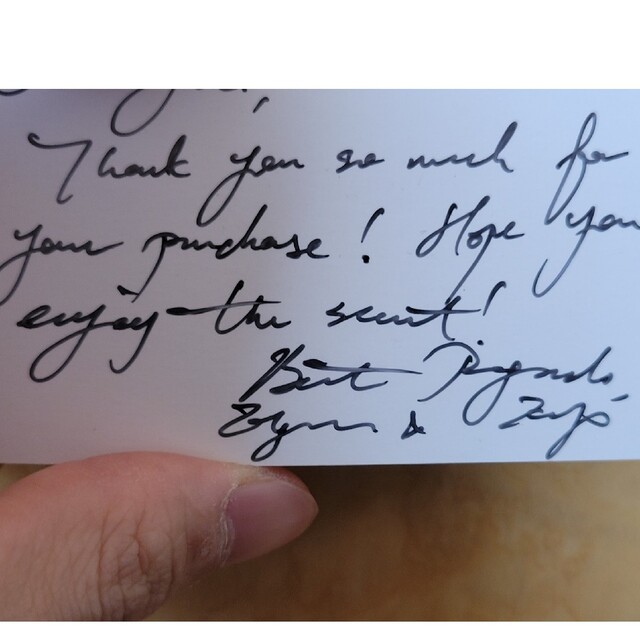 Thank you so much for
your purchase! Hope you
enjoy the scent!
Best Regards,
&